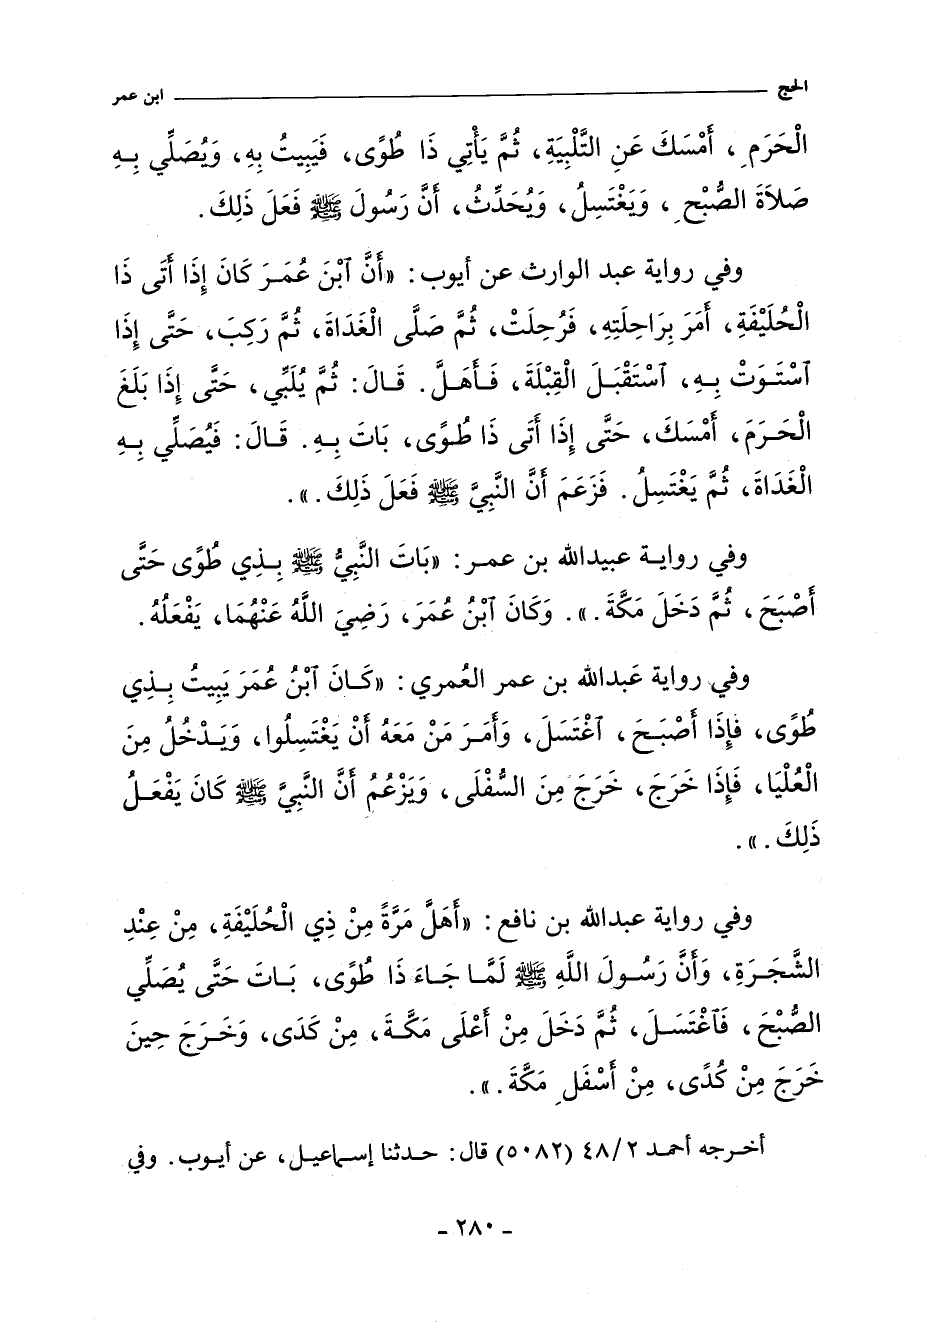 الحج ابن عمر
الْحَرَمِ، أَمْسَكَ عَنِ التَّلْبِيَةِ، ثُمَّ يَأْتِي ذَا طُوًى، فَيَبِيتُ بِهِ، وَيُصَلِّي بِهِ
صَلاَةَ الصُّبْحِ، وَيَغْتَسِلُ، وَيُحَدِّثُ، أَنَّ رَسُولَ ﷺ فَعَلَ ذَلِكَ.
وفي رواية عبد الوارث عن أيوب: «أَنَّ ٱبْنَ عُمَرَ كَانَ إِذَا أَتَى ذَا
الْحُلَيْفَةِ، أَمَرَ بِرَاحِلَتِهِ، فَرُحِلَتْ، ثُمَّ صَلَّى الْغَدَاةَ، ثُمَّ رَكِبَ، حَتَّى إِذَا
ٱسْتَوَتْ بِهِ، ٱسْتَقْبَلَ الْقِبْلَةَ، فَأَهَلَّ. قَالَ: ثُمَّ يُلَبِّي، حَتَّى إِذَا بَلَغَ
الْحَرَمَ، أَمْسَكَ، حَتَّى إِذَا أَتَى ذَا طُوًى، بَاتَ بِهِ. قَالَ: فَيُصَلِّي بِهِ
الْغَدَاةَ، ثُمَّ يَغْتَسِلُ. فَزَعَمَ أَنَّ النَّبِيَّ ﷺ فَعَلَ ذَلِكَ.».
وفي رواية عبيدالله بن عمر: «بَاتَ النَّبِيُّ ﷺ بِذِي طُوًى حَتَّى
أَصْبَحَ، ثُمَّ دَخَلَ مَكَّةَ.». وَكَانَ ٱبْنُ عُمَرَ، رَضِيَ اللَّهُ عَنْهُمَا، يَفْعَلُهُ.
وفي رواية عَبدالله بن عمر العُمري: «كَانَ ٱبْنُ عُمَرَ يَبِيتُ بِذِي
طُوًى، فَإِذَا أَصْبَحَ، ٱغْتَسَلَ، وَأَمَرَ مَنْ مَعَهُ أَنْ يَغْتَسِلُوا، وَيَدْخُلُ مِنَ
الْعُلْيَا، فَإِذَا خَرَجَ، خَرَجَ مِنَ السُّفْلَى، وَيَزْعُمُ أَنَّ النَّبِيَّ ﷺ كَانَ يَفْعَلُ
ذَلِكَ.».
وفي رواية عبدالله بن نافع: «أَهَلَّ مَرَّةً مِنْ ذِي الْحُلَيْفَةِ، مِنْ عِنْدِ
الشَّجَرَةِ، وَأَنَّ رَسُولَ اللَّهِ ﷺ لَمَّا جَاءَ ذَا طُوًى، بَاتَ حَتَّى يُصَلِّي
الصُّبْحَ، فَٱغْتَسَلَ، ثُمَّ دَخَلَ مِنْ أَعْلَى مَكَّةَ، مِنْ كَدَى، وَخَرَجَ حِينَ
خَرَجَ مِنْ كُدًى، مِنْ أَسْفَلِ مَكَّةَ.».
أخرجه أحمد ٤٨/٢ (٥٠٨٢) قال: حدثنا إسماعيل، عن أيوب. وفي
- ٢٨٠ -